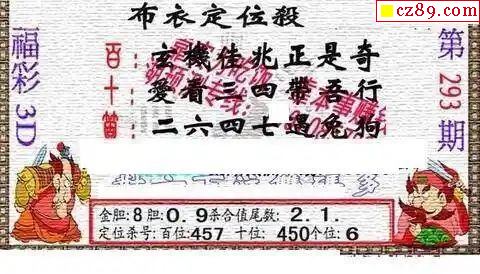 cz89.com
布衣定位殺
福彩3D
第293期
百：玄機佳兆正是奇
十：愛看三四帶吾行
個：二六四七遇兔狗
金胆:8胆:0.9杀合值尾数:2.1.
定位杀号:百位:457 十位:450个位:6